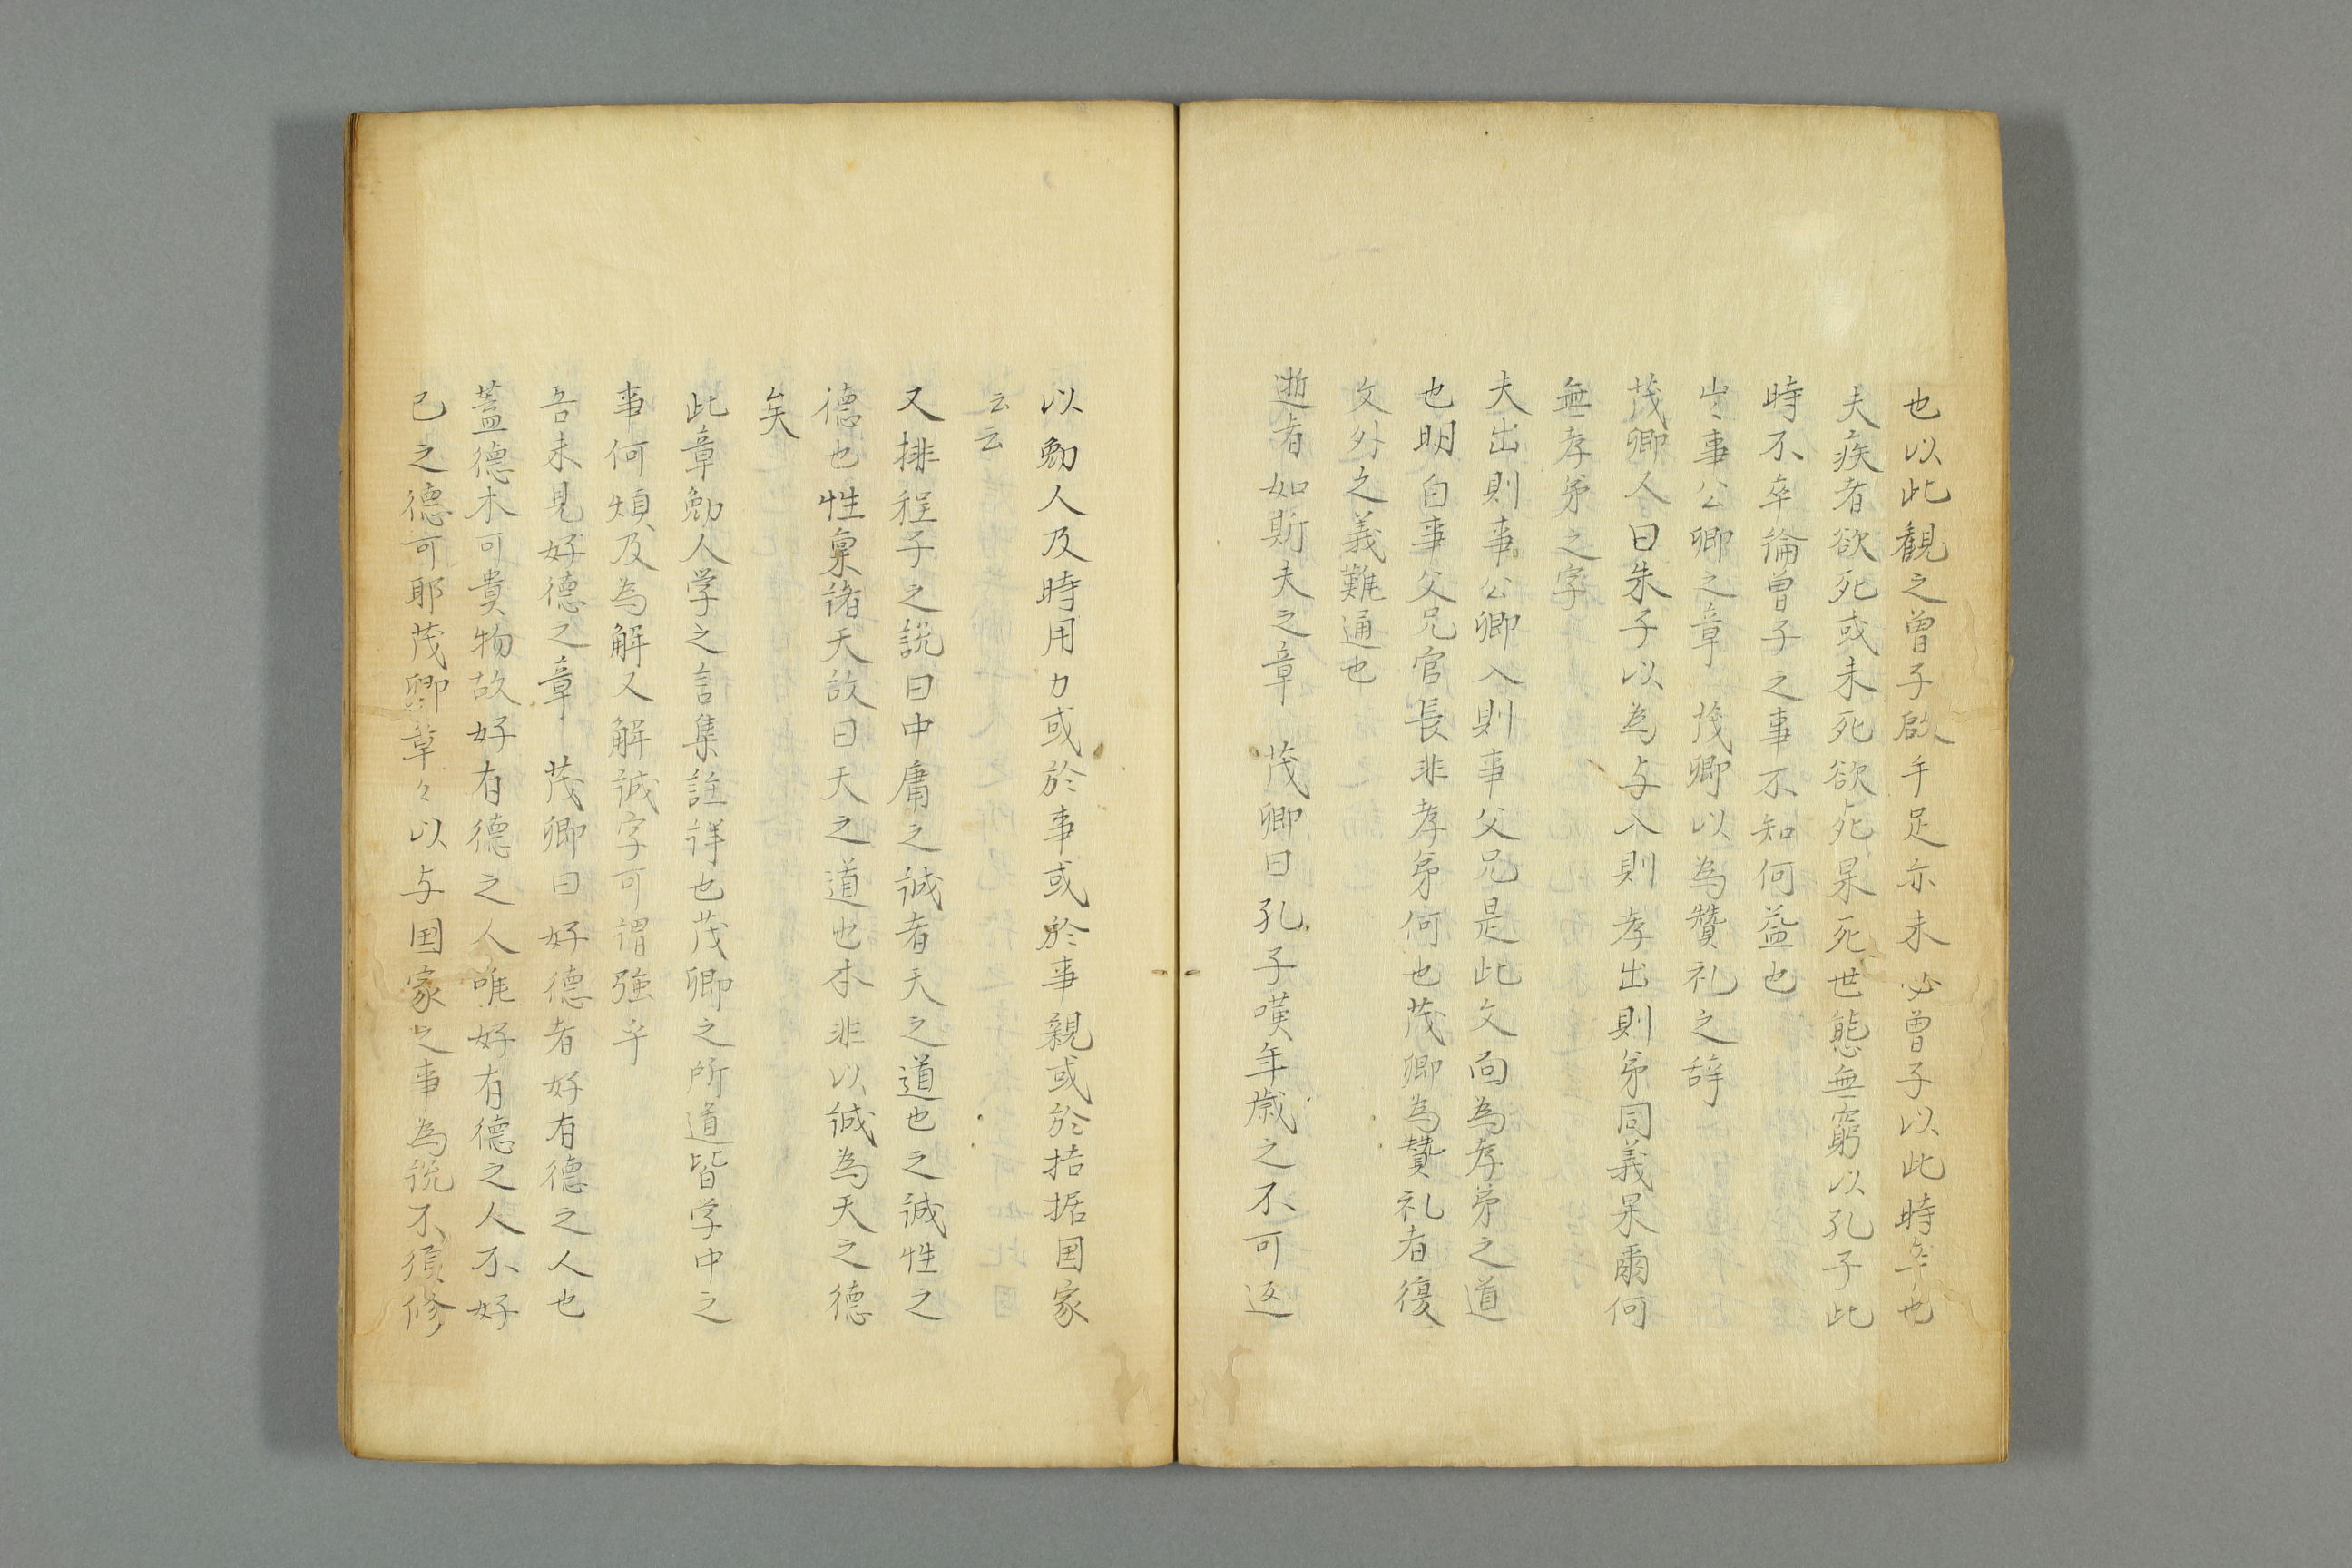 也以此観之曽子啟手足亦未必曽子以此時卒也
夫疾者欲死或未死欲死杲死世態無窮以孔子此
時不卒倫曽子之事不知何益也
出事公卿之章　茂卿以為贊礼之辞
茂卿人曰朱子以為与入則孝出則弟同義杲爾何
無孝弟之字
夫出則事公卿入則事父兄是此文面為孝弟之道
也明白事父兄官長非孝弟何也茂卿為贊礼者復
文外之義難通也
逝者如斯夫之章　茂卿曰孔子嘆年歳之不可返
以勉人及時用力或於事或於事親或於拮据国家
云云
又排程子之説曰中庸之誠者天之道也之誠性之
德也性稟諸天故曰天之道也本非以誠為天之德
矣
此章勉人学之言集註詳也茂卿之所道皆学中之
事何煩及為解又解誠字可謂強乎
吾未見好德之章　茂卿曰好德者好有德之人也
蓋德木可貴物故好有德之人唯好有德之人不好
己之德可耶茂卿章々以与国家之事為説不須修